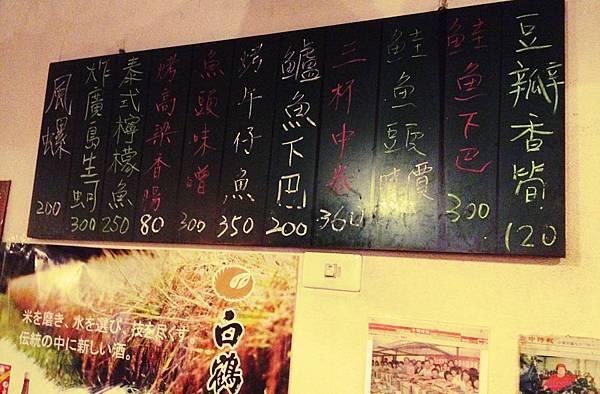 豆瓣香筍 120
鮭魚下巴 300
鮭魚頭 時價
三杯中卷 360
鱸魚下巴 200
烤午仔魚 350
魚頭味噌 300
烤高梁香腸 80
泰式檸檬魚 250
炸廣島生蚵 300
風螺 200
米を磨き、水を選び、技を尽くす。
伝統の中に新しい酒。
白鶴